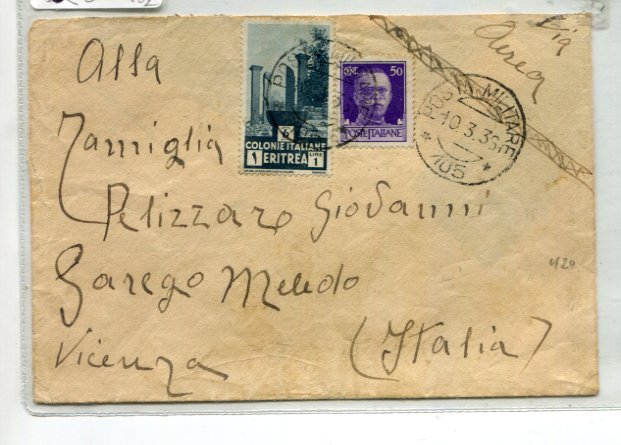 Via
Aerea
Alla
Famiglia
Pelizzaro Giovanni
Sarego Meledo
Vicenza (Italia)
COLONIE ITALIANE
1 ERITREA LIRE 1
CENT. 50
POSTE ITALIANE
POSTA MILITARE
10.3.36
* 105 *